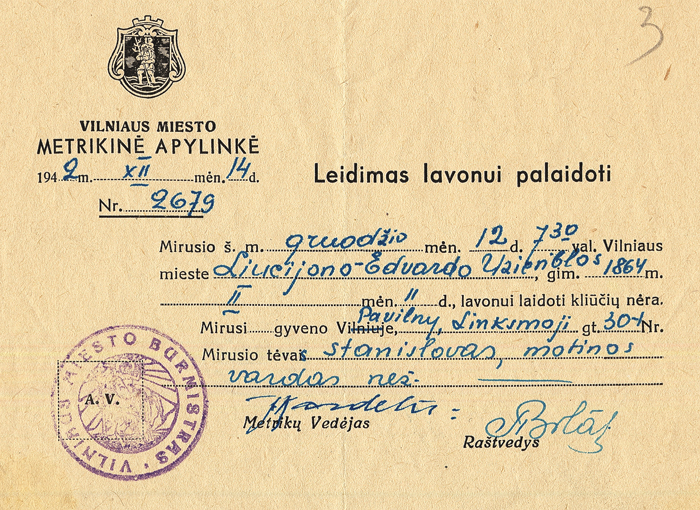 3
VILNIAUS MIESTO
METRIKINĖ APYLINKĖ
1942 m. XII mėn. 14 d.
Nr. 2679
Leidimas lavonui palaidoti
Mirusio š. m. gruodžio mėn. 12 d. 7 30 val. Vilniaus
mieste Liucijono-Edvardo Uzienblos, gim. 1864 m.
II mėn. 11 d., lavonui laidoti kliūčių nėra.
Mirusi gyveno Vilniuje, Pavilny, Linksmoji gt. 30-1 Nr.
Mirusio tėvas Stanislovas, motinos
vardas než.
A. V.
VILNIAUS MIESTO BURMISTRAS
Metrikų Vedėjas
Raštvedys